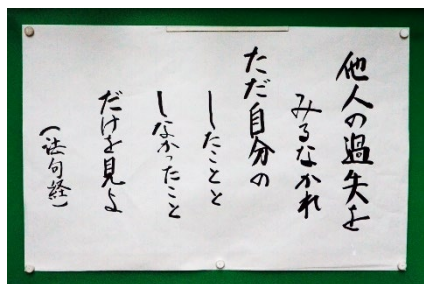 他人の過失を
みるなかれ
ただ自分の
したことと
しなかったこと
だけを見よ
(法句経)